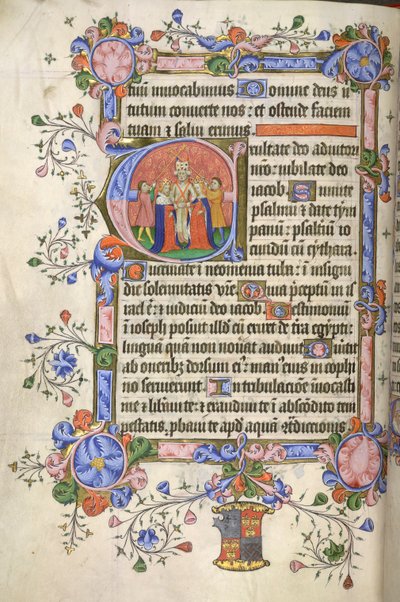 tuū invocabimus Domine deus v
tutum conuerte nos: et ostende faciem
tuam & salui erimus
Exultate deo adiutori
nr̄o: iubilate deo
iacob Sumite
psalmū & date tym
panū: psaltiū io
cundū cū cythara
Buccinate ī neomenia tuba: ī insigni
die solennitatis vr̄e Quia p̄ceptū in is
rael ē: & iudiciū deo iacob Testimoniū
ī ioseph posuit illd cū exiret de tr̄a egypti
lingua quā non nouit audiuit Diuertit
ab oneribȝ dorsum eiꝰ: manꝰ eius in cophi
no seruierunt In tribulacōne inuocasti
me & libaui te: & exaudiui te ī abscōdito tem
pestatis, pbaui te apd aquā 9tradictionis